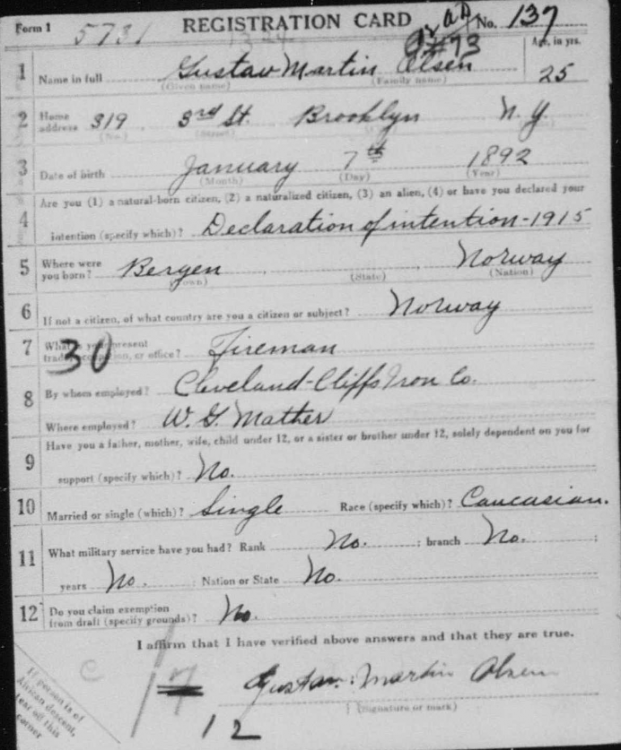 Form 1 5731 REGISTRATION CARD No. 137
#93
Age, in yrs.
1 Name in full Gustav Martin Olsen 25
(Given name) (Family name)
2 Home address 319 3rd St. Brooklyn N.Y.
(No.) (Street)
3 Date of birth January 7th 1892
(Month) (Day) (Year)
Are you (1) a natural-born citizen, (2) a naturalized citizen, (3) an alien, (4) or have you declared your
4 intention (specify which)? Declaration of intention-1915
5 Where were you born? Bergen Norway
(Town) (State) (Nation)
6 If not a citizen, of what country are you a citizen or subject? Norway
7 What is your present trade, occupation, or office? Fireman
30
8 By whom employed? Cleveland-Cliffs Iron Co.
Where employed? W. G. Mather
9 Have you a father, mother, wife, child under 12, or a sister or brother under 12, solely dependent on you for
support (specify which)? No.
10 Married or single (which)? Single Race (specify which)? Caucasian.
11 What military service have you had? Rank No. ; branch No. ;
years No. ; Nation or State No.
12 Do you claim exemption from draft (specify grounds)? No.
I affirm that I have verified above answers and that they are true.
If person is of
African descent,
tear off this
corner
C
17
Gustav. Martin Olsen
(Signature or mark)
12